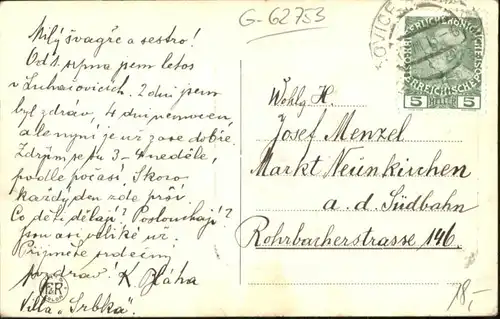 G-62753
Milý švagře a sestro!
Od 1. srpna jsem letos
v Luhačovicích. 2 dni jsem
byl zdráv, 4 dni nemocen,
ale nyní je už zase dobře.
Zdržím se tu 3-4 neděle,
podle počasí. Skoro
každý den zde prší.
Co děti dělají? Poslouchají?
Jsou asi veliké už.
Přijměte srdečný
pozdrav. K. Bláha
Villa „Srbka".
ER
OVICE
5 HELLER 5
Wohlg. H.
Josef Menzel
Markt Neunkirchen
a. d. Südbahn
Rohrbacherstrasse 146.
18,-